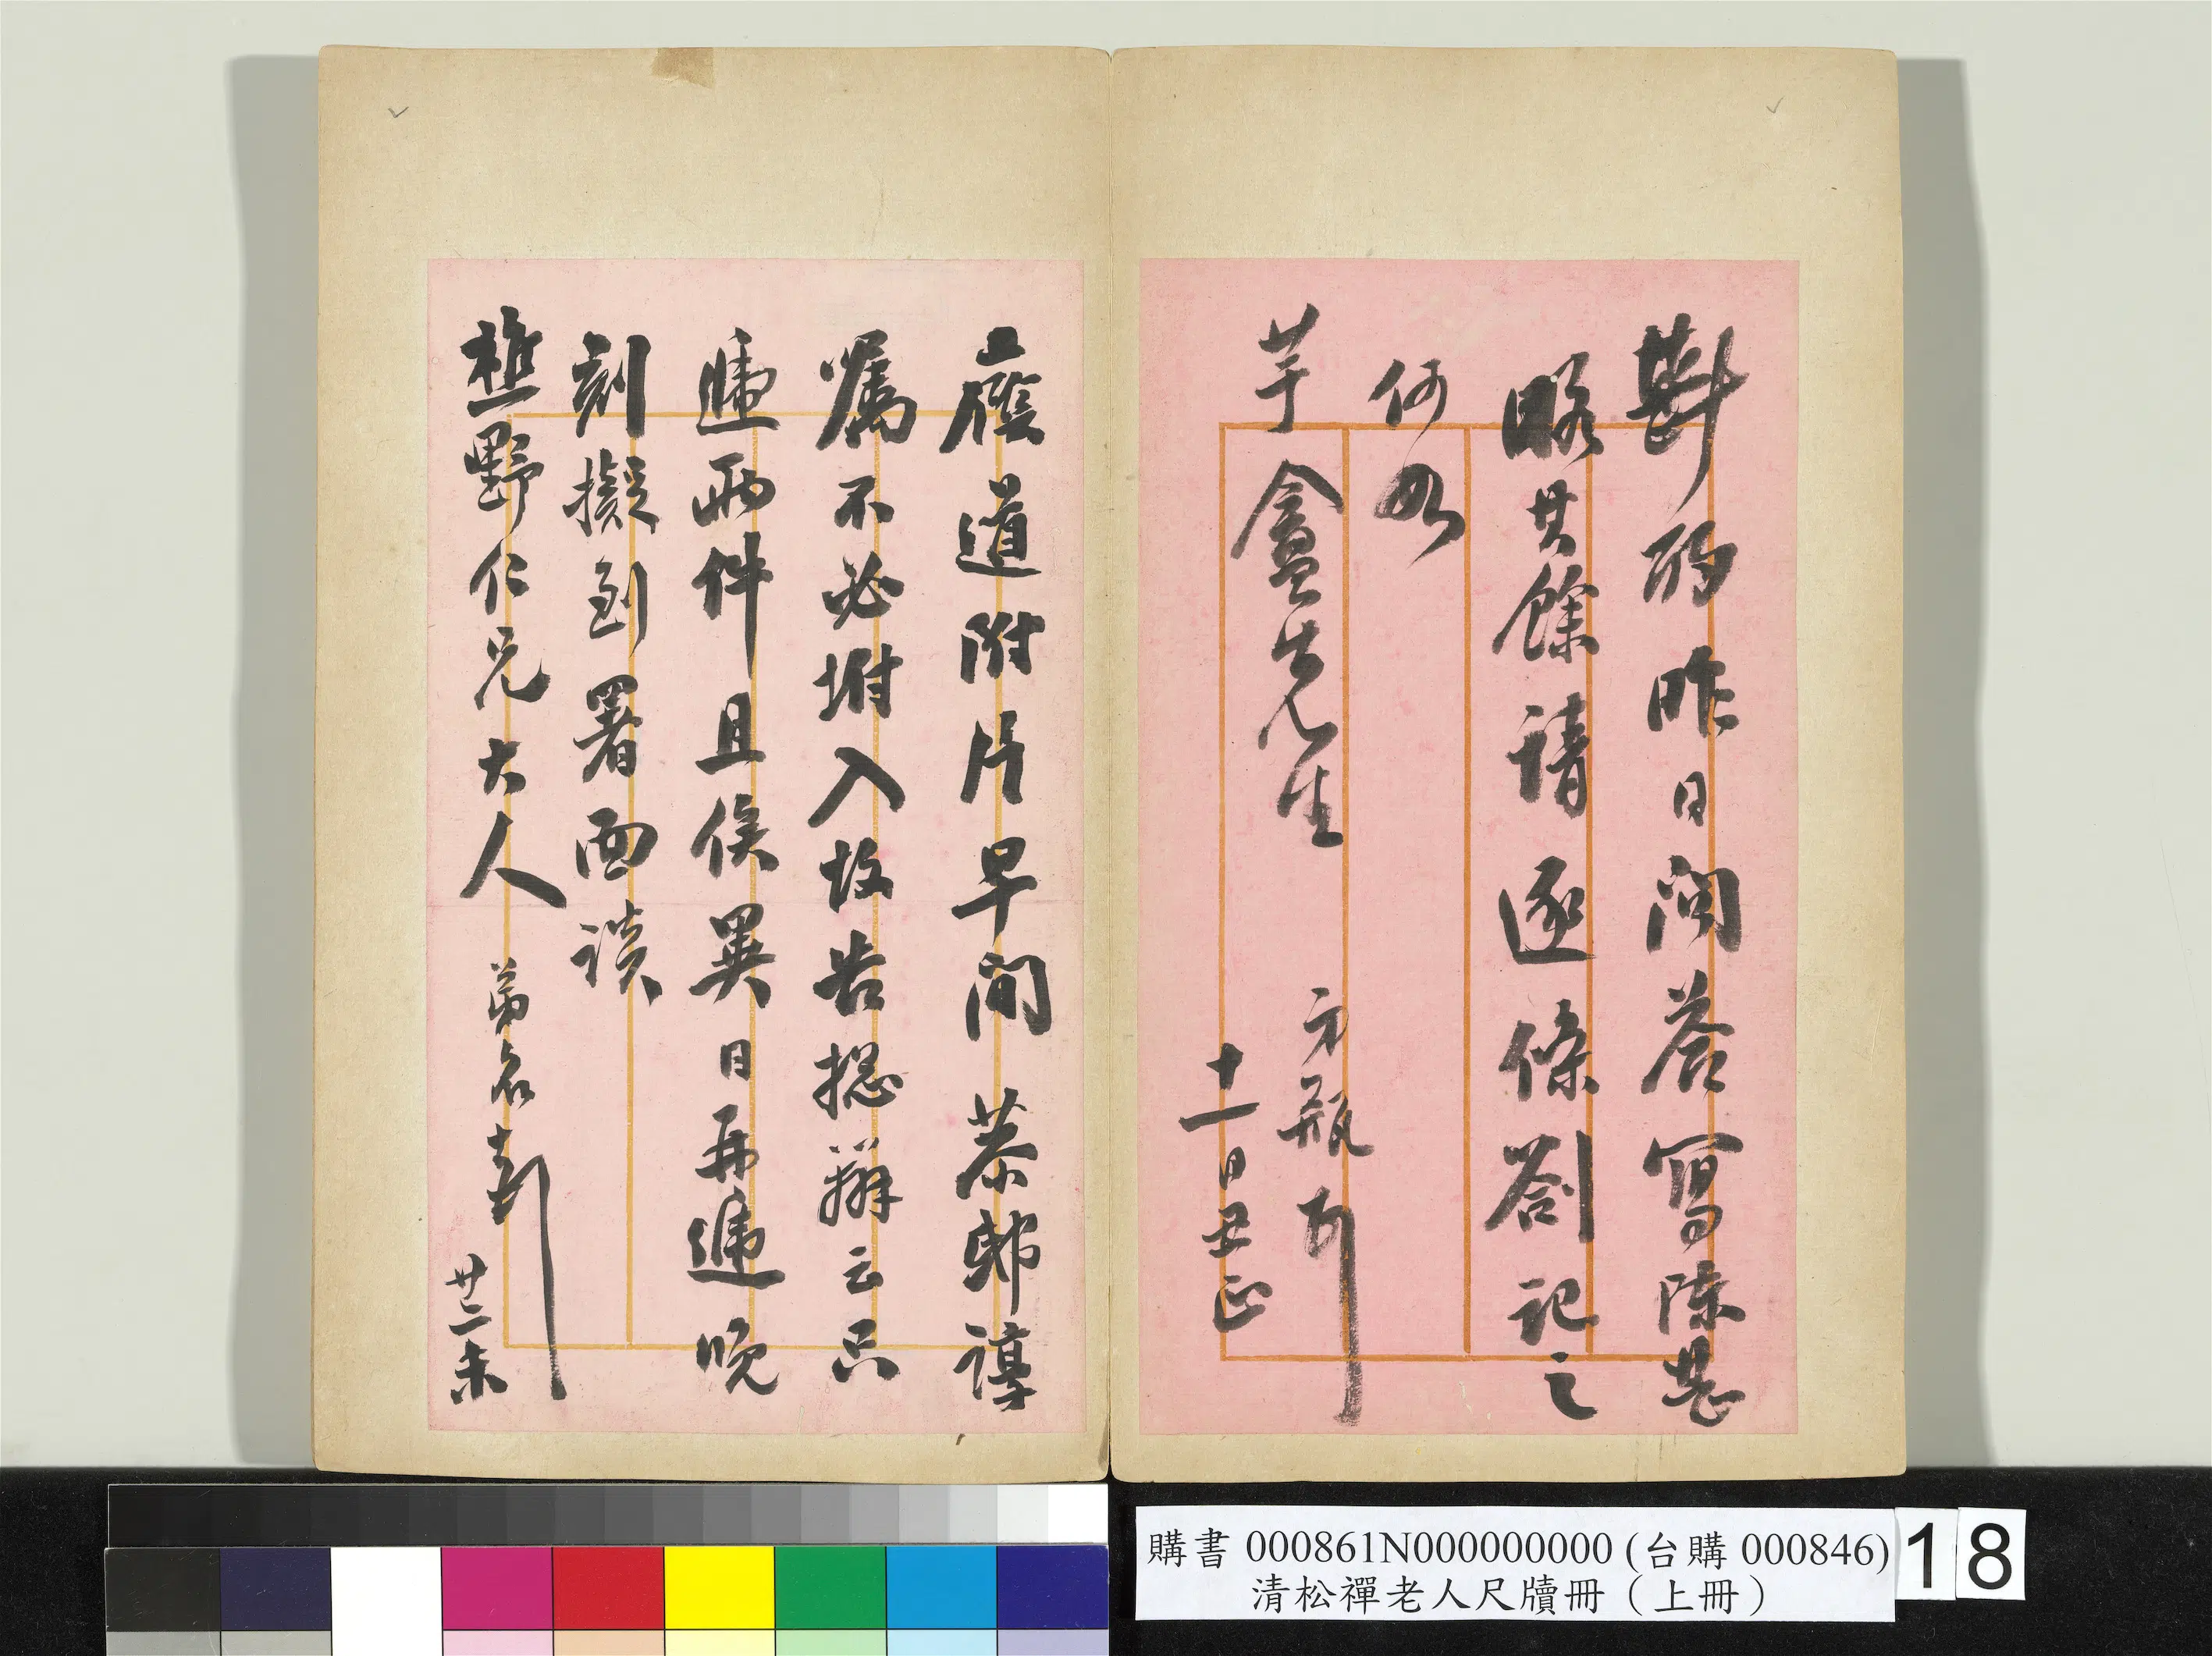 斟酌昨日問答寫陳甚
略其餘請逐條劄記之
何如
芋盦先生
方瓶頓
十一日丑正
應道附片早間恭邸諄
囑不必坿入故告捴辦云只
遞兩件且俟異日再遞晚
刻擬到署面談
樵野仁兄大人
弟名頓
廿二未
購書 000861N000000000 (台購 000846)
清松禪老人尺牘冊（上冊）
18